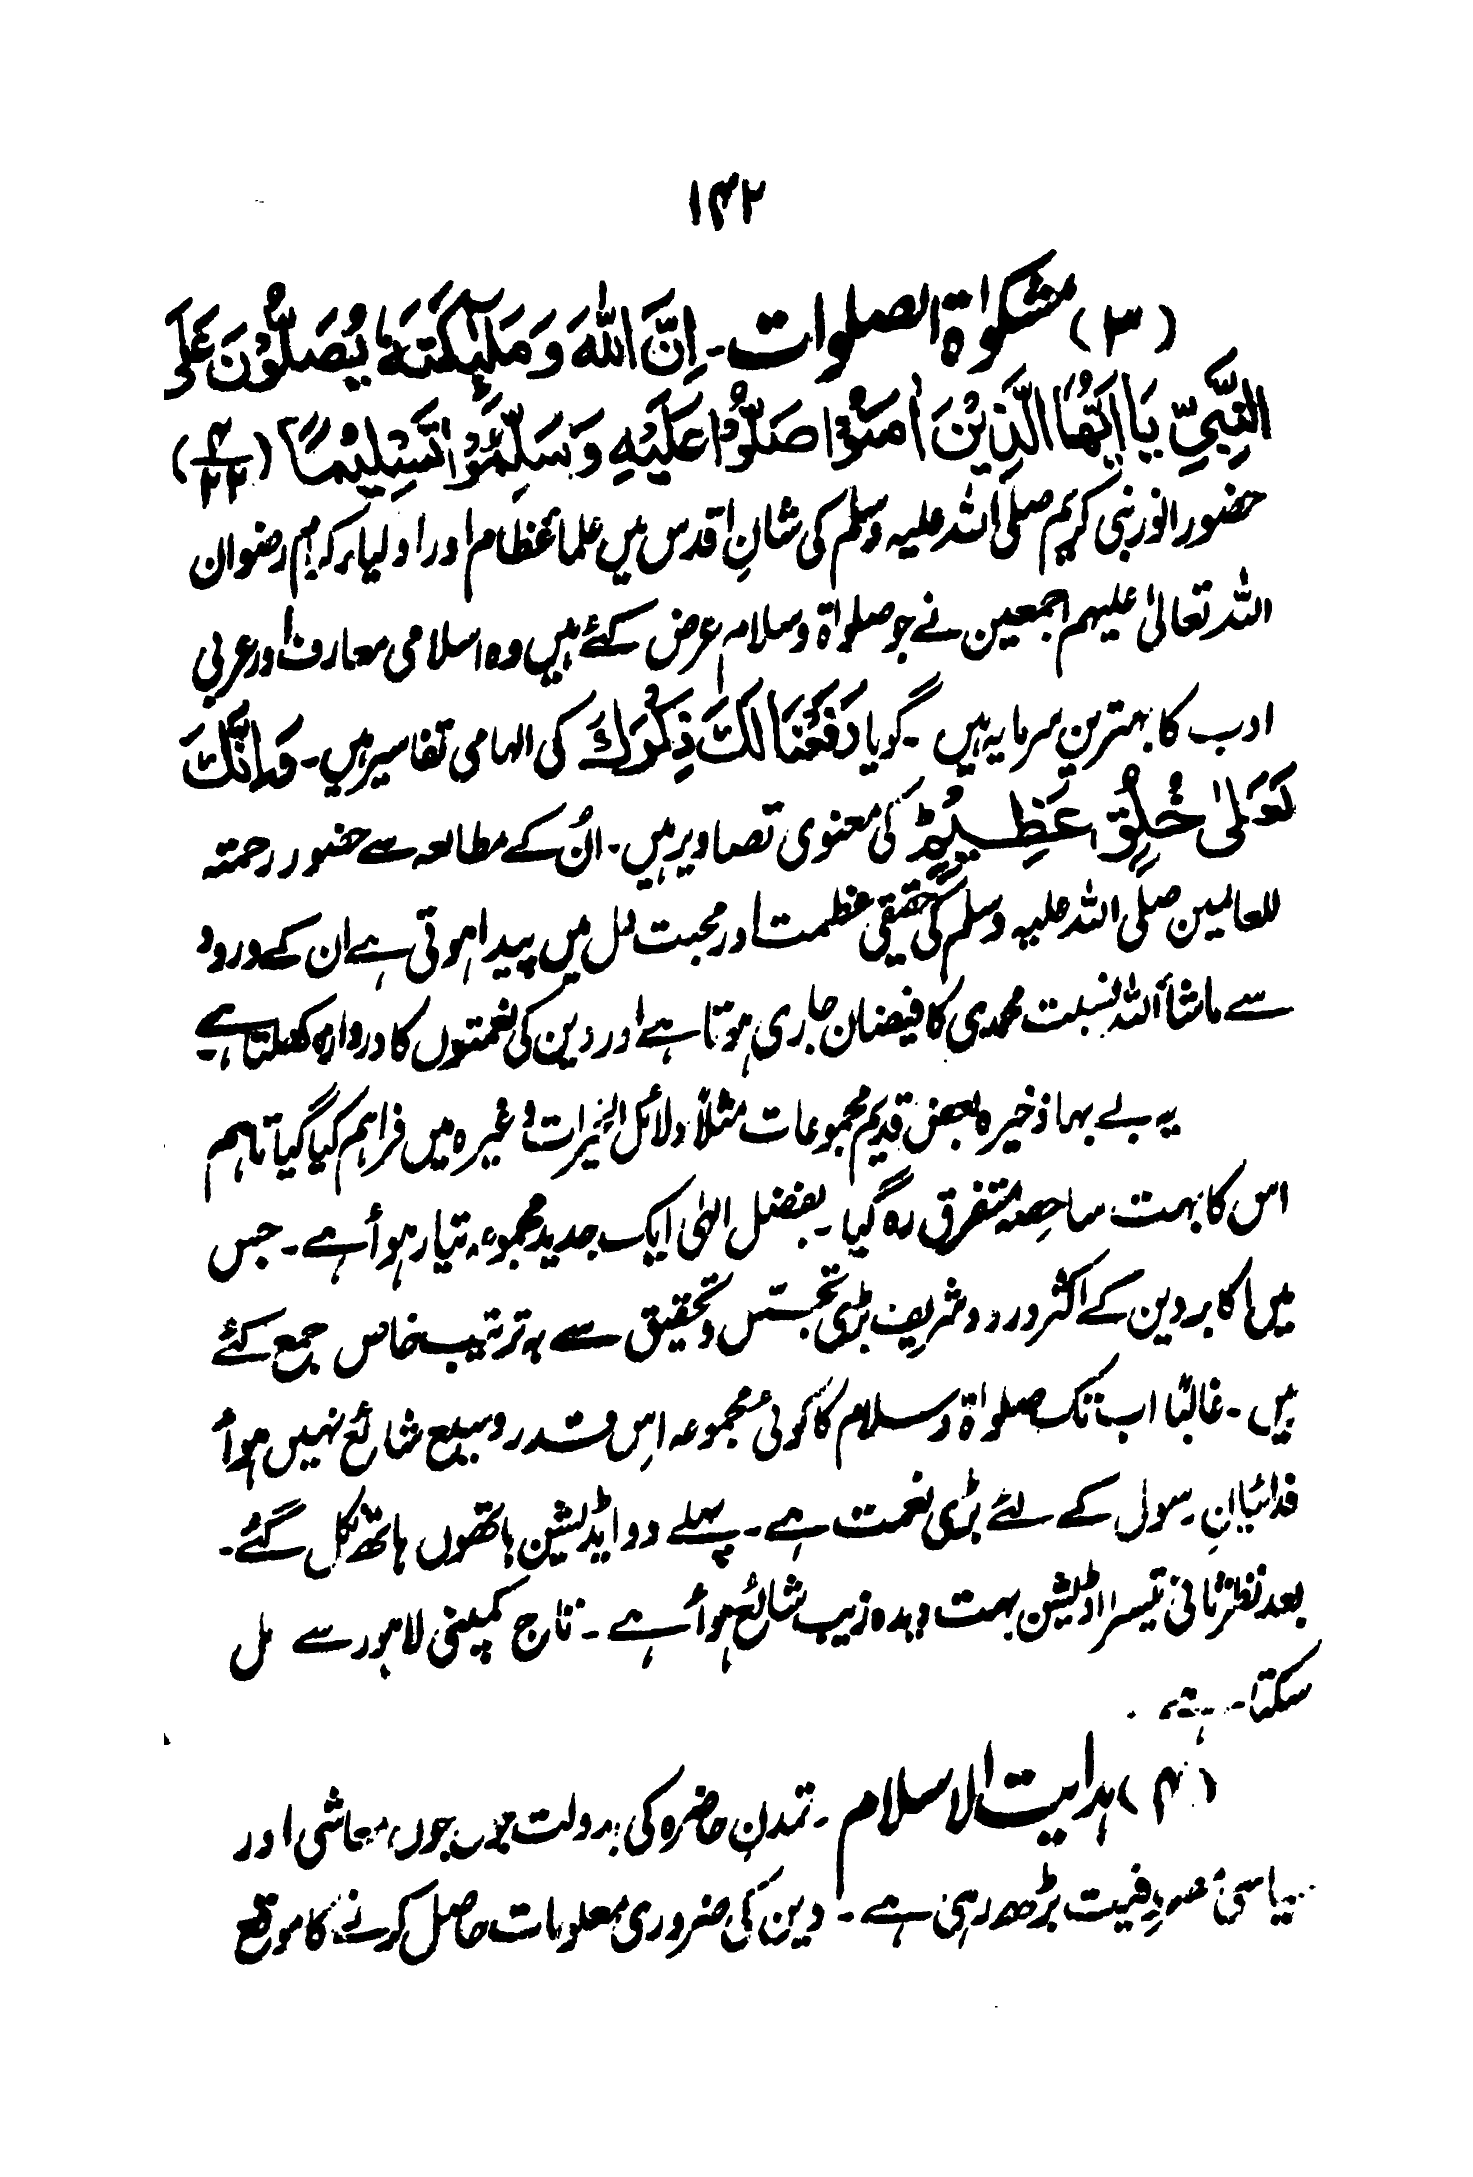 ۱۴۲
(۳) مشکوٰۃ الصلوات ۔ اِنَّ اللّٰهَ وَمَلٰٓئِکَتَهٗ یُصَلُّوْنَ عَلَی
النَّبِیِّ یَا اَیُّهَا الَّذِیْنَ اٰمَنُوْا صَلُّوْا عَلَیْهِ وَسَلِّمُوْا تَسْلِیْمًا (۴/۲۲)
حضور انور نبی کریم صلی اللہ علیہ وسلم کی شانِ اقدس میں علمأ عظام اور اولیاء کرام رضوان
اللہ تعالیٰ علیہم اجمعین نے جو صلوٰۃ وسلام عرض کئے ہیں وہ اسلامی معارف اور عربی
ادب کا بہترین سرمایہ ہیں ۔ گویا رَفَعْنَا لَکَ ذِکْرَکَ کی الہامی تفاسیر ہیں ۔ وَاِنَّکَ
لَعَلٰی خُلُقٍ عَظِیْمٍ کی معنوی تصاویر ہیں ۔ اُن کے مطالعہ سے حضور رحمتہ
للعالمین صلی اللہ علیہ وسلم کی حقیقی عظمت اور محبت دل میں پیدا ہوتی ہے ان کے ورود
سے ماشأ اللہ نسبت محمدی کا فیضان جاری ہوتا ہے اور دین کی نعمتوں کا دروازہ کھلتا ہے
یہ بے بہا ذخیرہ بعض قدیم مجموعات مثلاً دلائل الخیرات وغیرہ میں فراہم کیا گیا تاہم
اس کا بہت سا حصہ متفرق رہ گیا ۔ بفضل الٰہی ایک جدید مجموعہ تیار ہوأ ہے ۔ جس
میں اکابر دین کے اکثر درود شریف بڑی تجسّس و تحقیق سے بہ ترتیب خاص جمع کئے
ہیں ۔ غالباً اب تک صلوٰۃ وسلام کا کوئی مجموعہ اِس قدر وسیع شائع نہیں ہوأ
فدائیانِ رسول کے لئے بڑی نعمت ہے ۔ پہلے دو ایڈیشن ہاتھوں ہاتھ نکل گئے ۔
بعد نظر ثانی تیسرا اڈیشن بہت دیدہ زیب شائع ہوأ ہے ۔ تاج کمپنی لاہور سے مل
سکتا ہے
(۴) ہدایت الاسلام ۔ تمدنِ حاضرہ کی بدولت جوں جوں معاشی اور
سیاسی مصروفیت بڑھ رہی ہے ۔ دین کی ضروری معلومات حاصل کرنے کا موقع